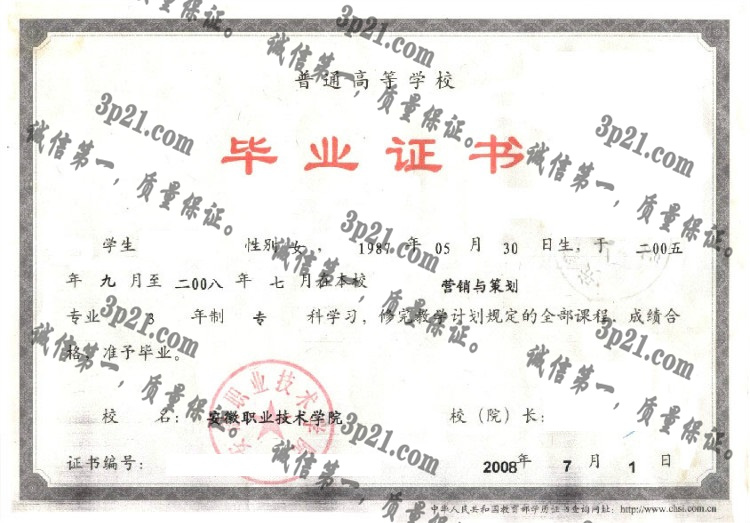 普通高等学校
毕业证书
学生 性别 女，1987 年 05 月 30 日生，于 二00五
年 九 月至 二00八 年 七 月在本校 营销与策划
专业 3 年制 专 科学习，修完教学计划规定的全部课程，成绩合
格，准予毕业。
校 名： 安徽职业技术学院 校（院）长：
证书编号： 2008 年 7 月 1 日
中华人民共和国教育部学历证书查询网址：http://www.chsi.com.cn
3p21.com
诚信第一，质量保证。
3p21.com
诚信第一，质量保证。
3p21.com
诚信第一，质量保证。
3p21.com
诚信第一，质量保证。
3p21.com
诚信第一，质量保证。
3p21.com
诚信第一，质量保证。
3p21.com
诚信第一，质量保证。